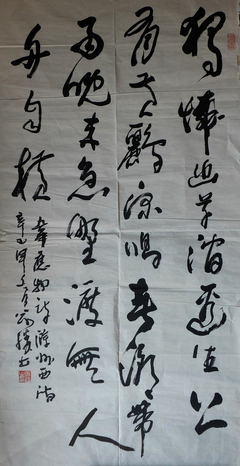 独怜幽草涧边生上
有黄鹂深鸣春潮带
雨晚来急野渡无人
舟自横
韦应物诗滁州西涧